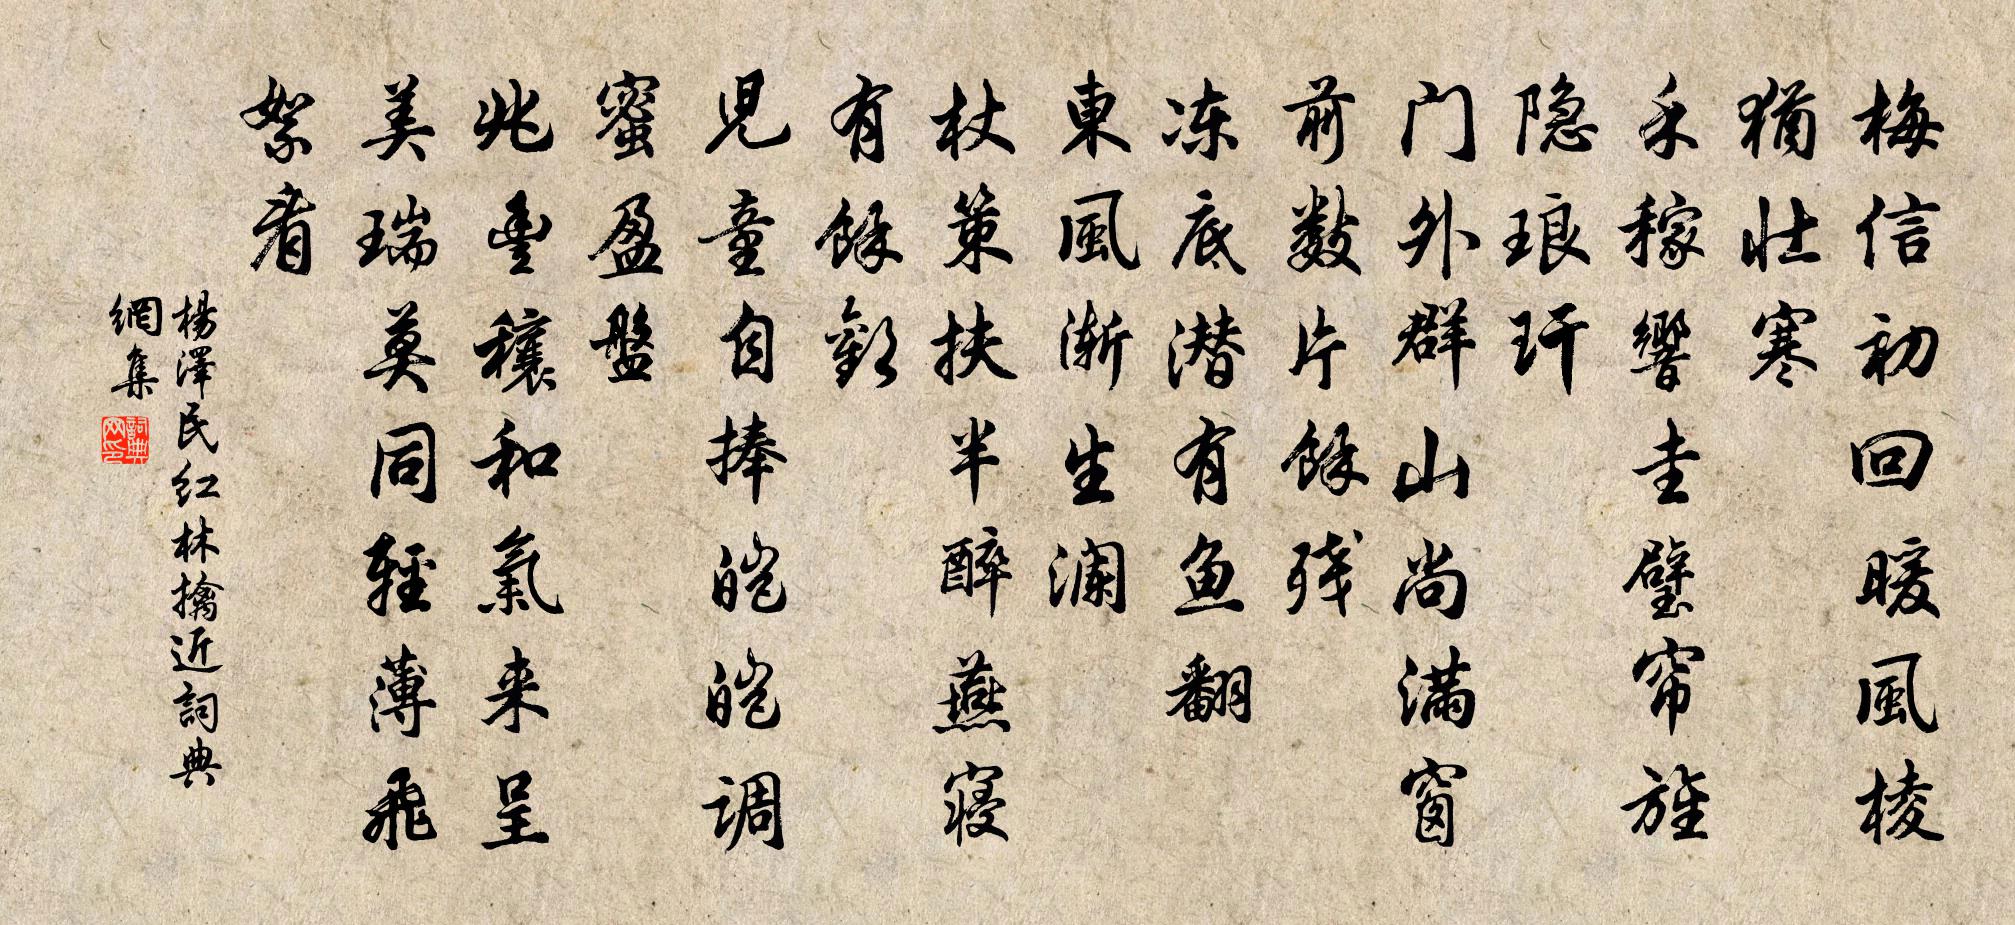 梅信初回暖風棱
猶壯寒
禾稼響圭璧帘旌
隐琅玕
门外群山尚满窗
前數片餘残
冻底潜有魚翻
東風渐生澜
杖策扶半醉燕寝
有餘歡
児童自捧皑皑调
蜜盈盤
兆豊穰和氣来呈
美瑞莫同輕薄飛
絮看
楊澤民红林擒近詞典
網集
詞典网印